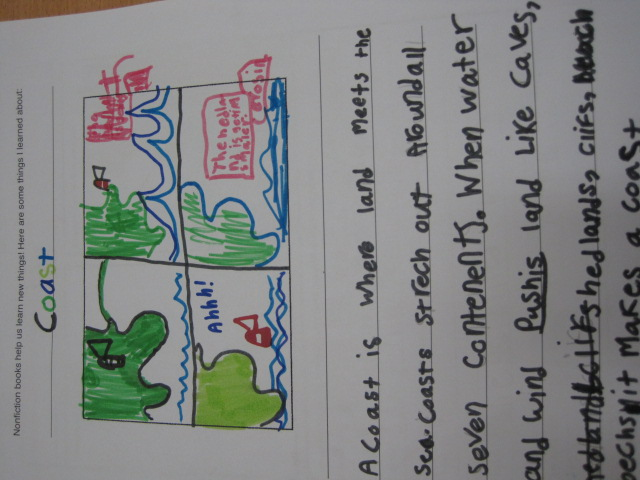 Nonfiction books help us learn new things! Here are some things I learned about:
Coast
The hedln
nd is gettin
smaler.
erosin
Ahhh!
A Coast is where land meets the
sea. Coasts strech out Arowndall
seven contenents. When water
and wind Pushis land Like Caves,
hedlands, cliffs,
it makes a coast